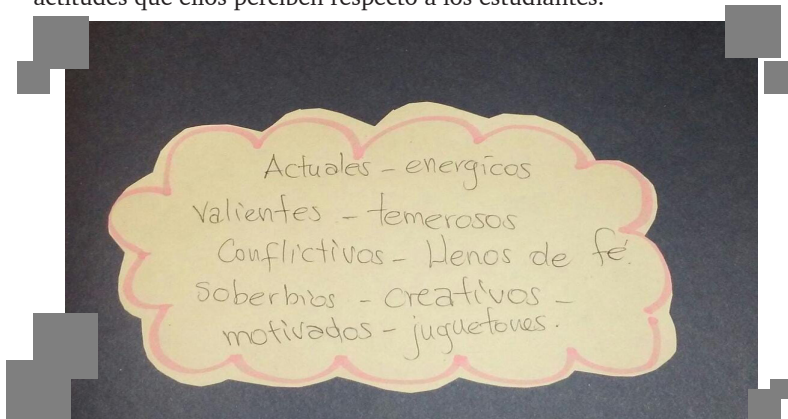 actitudes que ellos perciben respecto a los estudiantes.
Actuales - energicos
Valientes - temerosos
Conflictivos - Llenos de fé.
Soberbios - creativos -
motivados - juguetones.